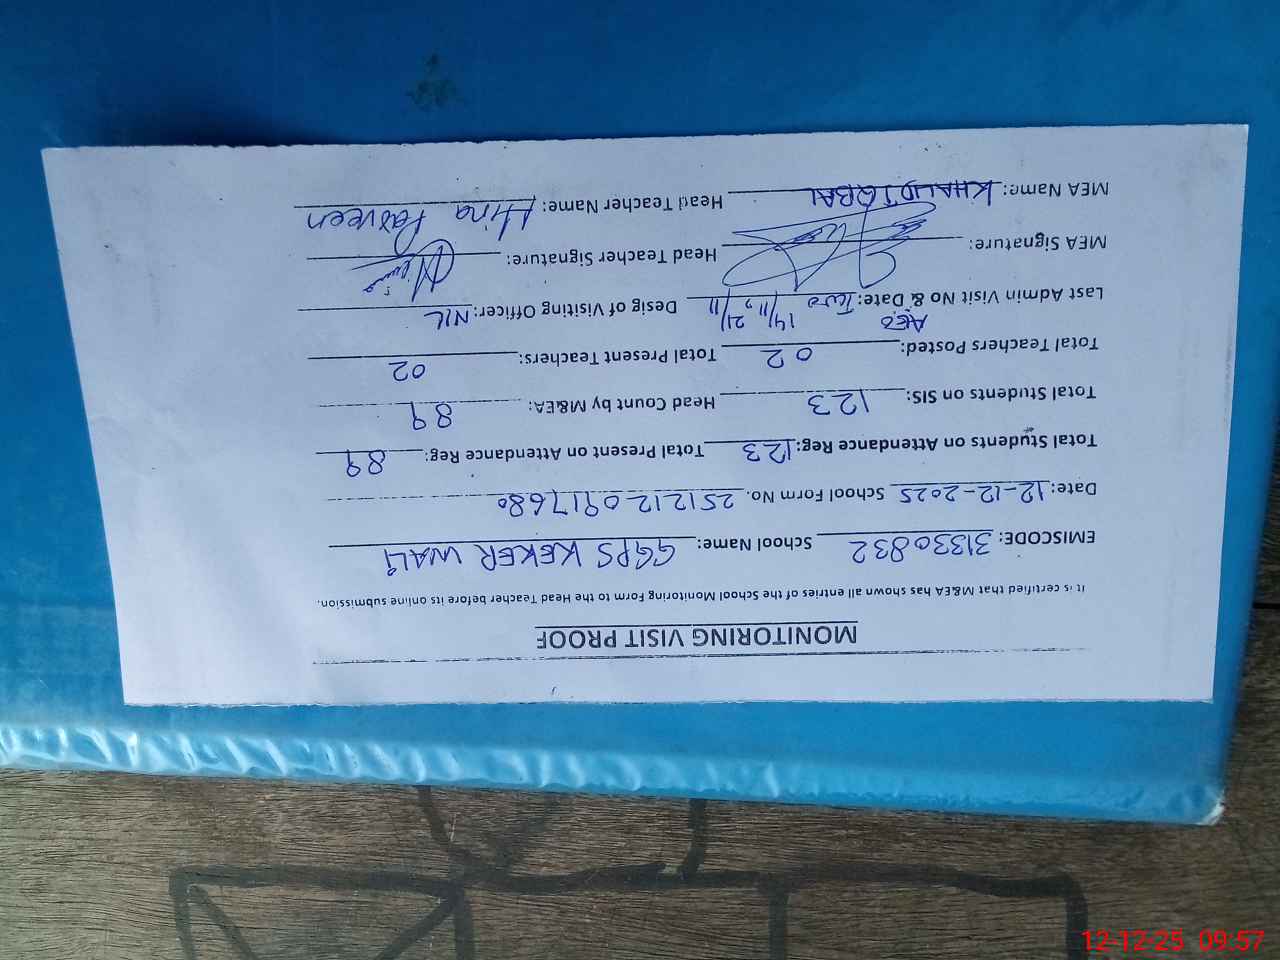 MONITORING VISIT PROOF
It is certified that MEA has shown all entries of the School Monitoring Form to the Head Teacher before its online submission.
EMISCODE: 31330832 School Name: GGPS KEKER WALI
Date: 12-12-2025 School Form No. 251212091768
Total Students on Attendance Reg: 123 Total Present on Attendance Reg: 89
Total Students on SIS: 123 Head Count by M&EA: 89
Total Teachers Posted: 02 Total Present Teachers: 02
AEO
Last Admin Visit No & Date: Two 14/11, 21/11 Desig of Visiting Officer: NIL
MEA Signature: Head Teacher Signature: Hina
MEA Name: KHALID IQBAL Head Teacher Name: Hina Parveen
12-12-25 09:57